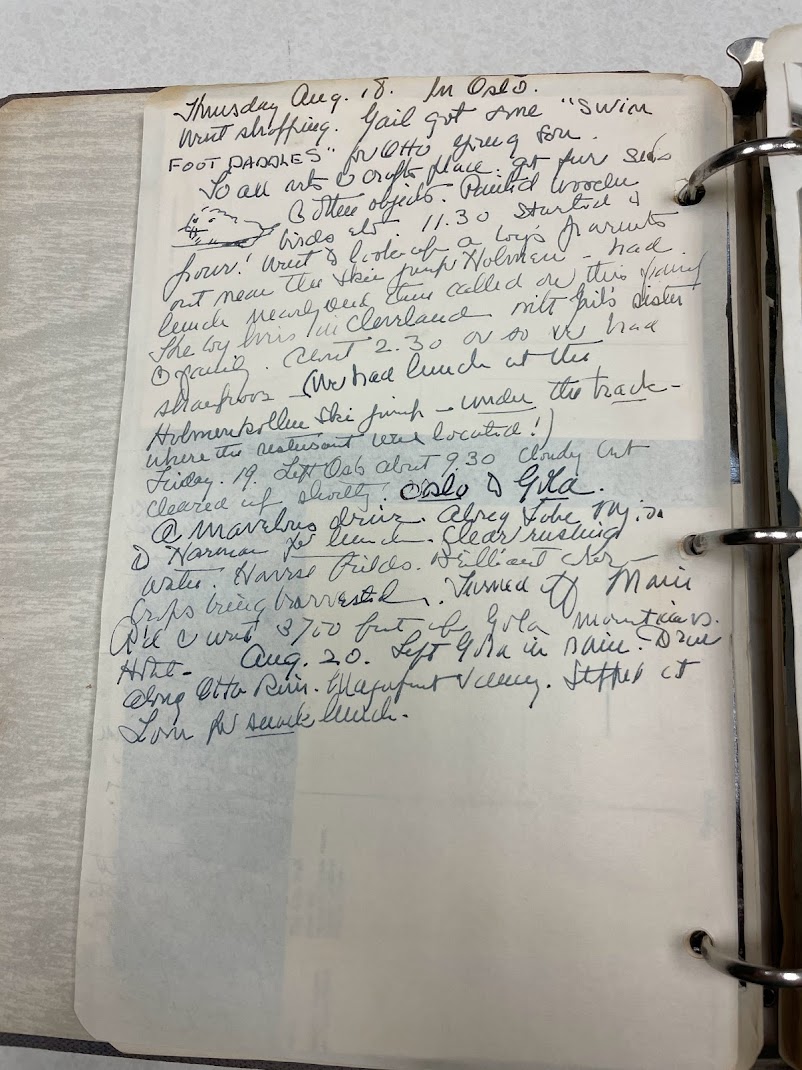 Thursday Aug. 18. In Oslo.
Went shopping. Gail got some "SWIM
FOOT PADDLES" for Otto young son.
To an arts & crafts place. got fur seals
& other objects. Painted wooden
birds etc. 11.30 Started
four! Went to look up a boy's parents
out near the Skie jump Holmen - had
lunch nearly and then called on this family
The boy lives in Cleveland with Gail's sister
& family. About 2.30 or so we had
(We had lunch at the
Holmenkollen Ski jump - under the track -
where the restaurant were located!)
Friday. 19. Left Oslo about 9.30 cloudy but
cleared up shortly. Oslo to Gola.
A marvelous drive. Along
to for lunch. Clear rushing
water. Fields. Brilliant
Crops being harvested. Turned off Main
Rd & went 3700 feet up Gola mountains.
Hotel- Aug. 20. Left Gola in rain. Drive
along Otto River. Magnificent scenery. Stopped at
Lom for snack lunch.